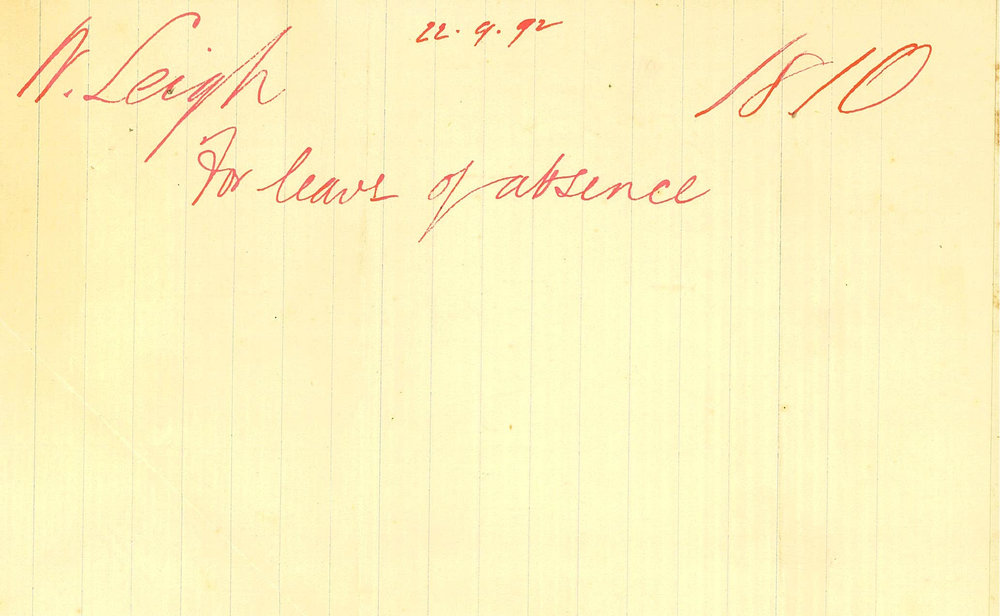 22.9.92
W. Leigh 1810
For leave of absence